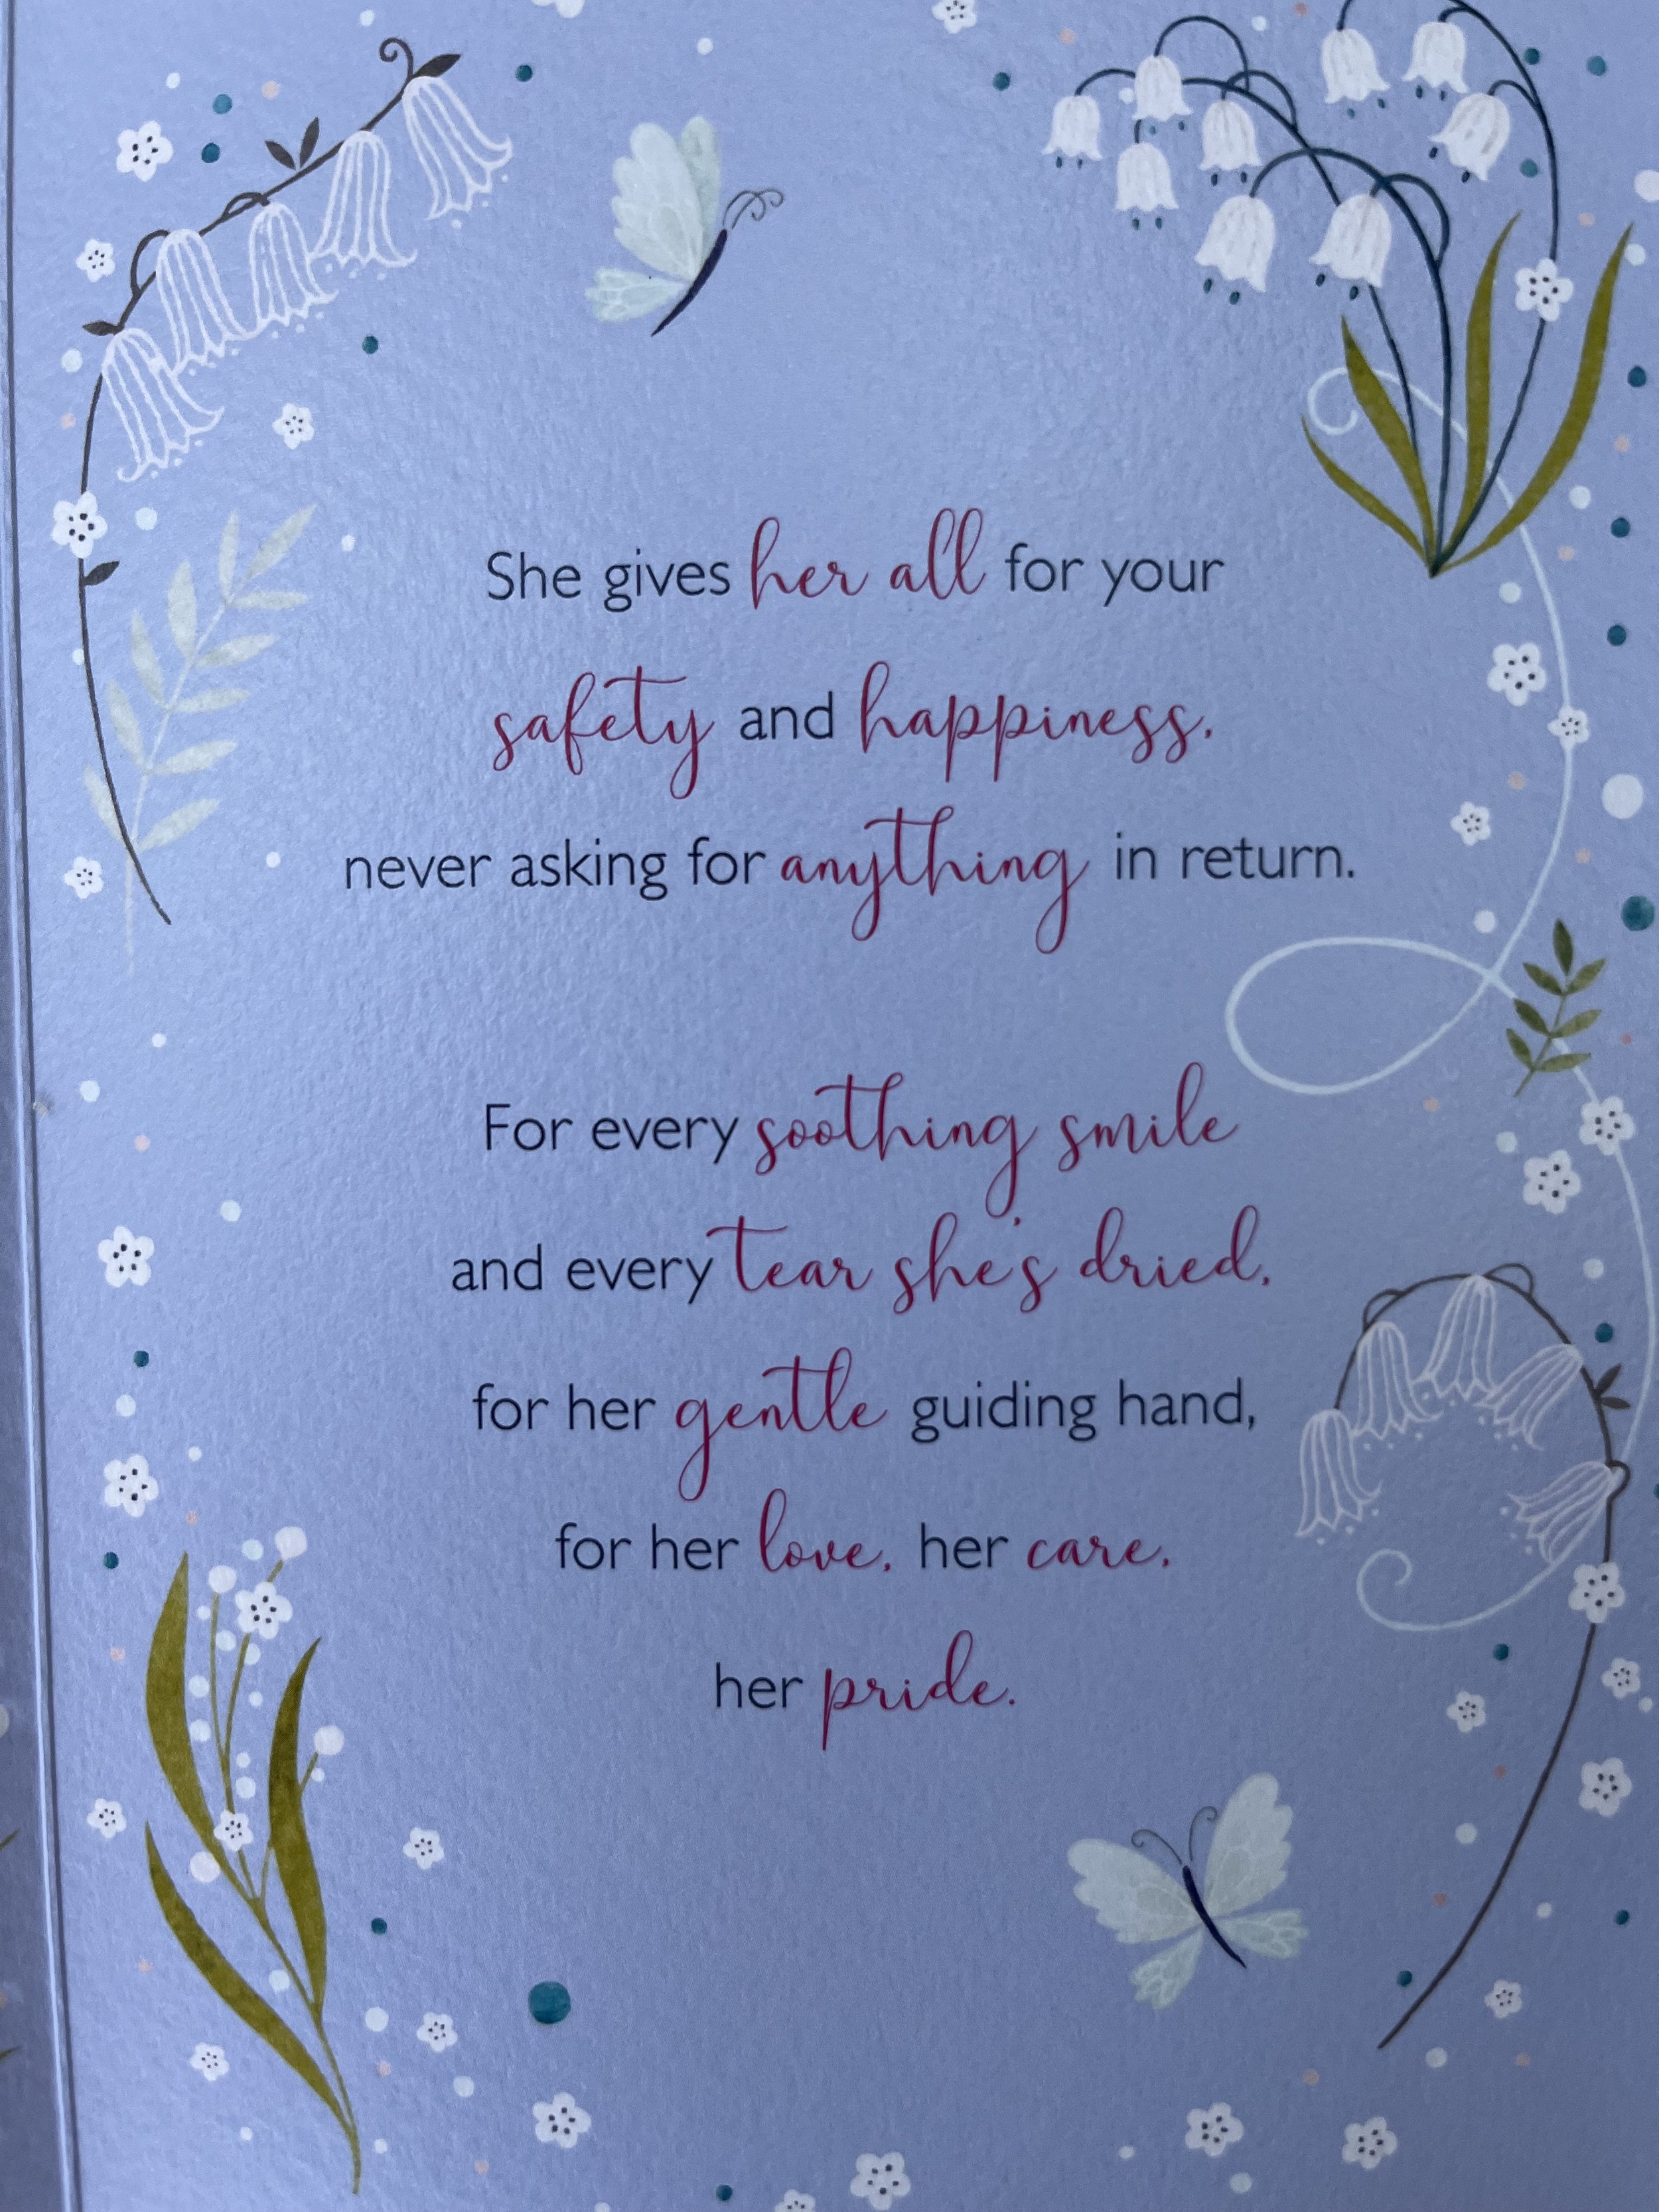 She gives her all for your
safety and happiness,
never asking for anything in return.
For every soothing smile
and every tear she's dried,
for her gentle guiding hand,
for her love, her care,
her pride.